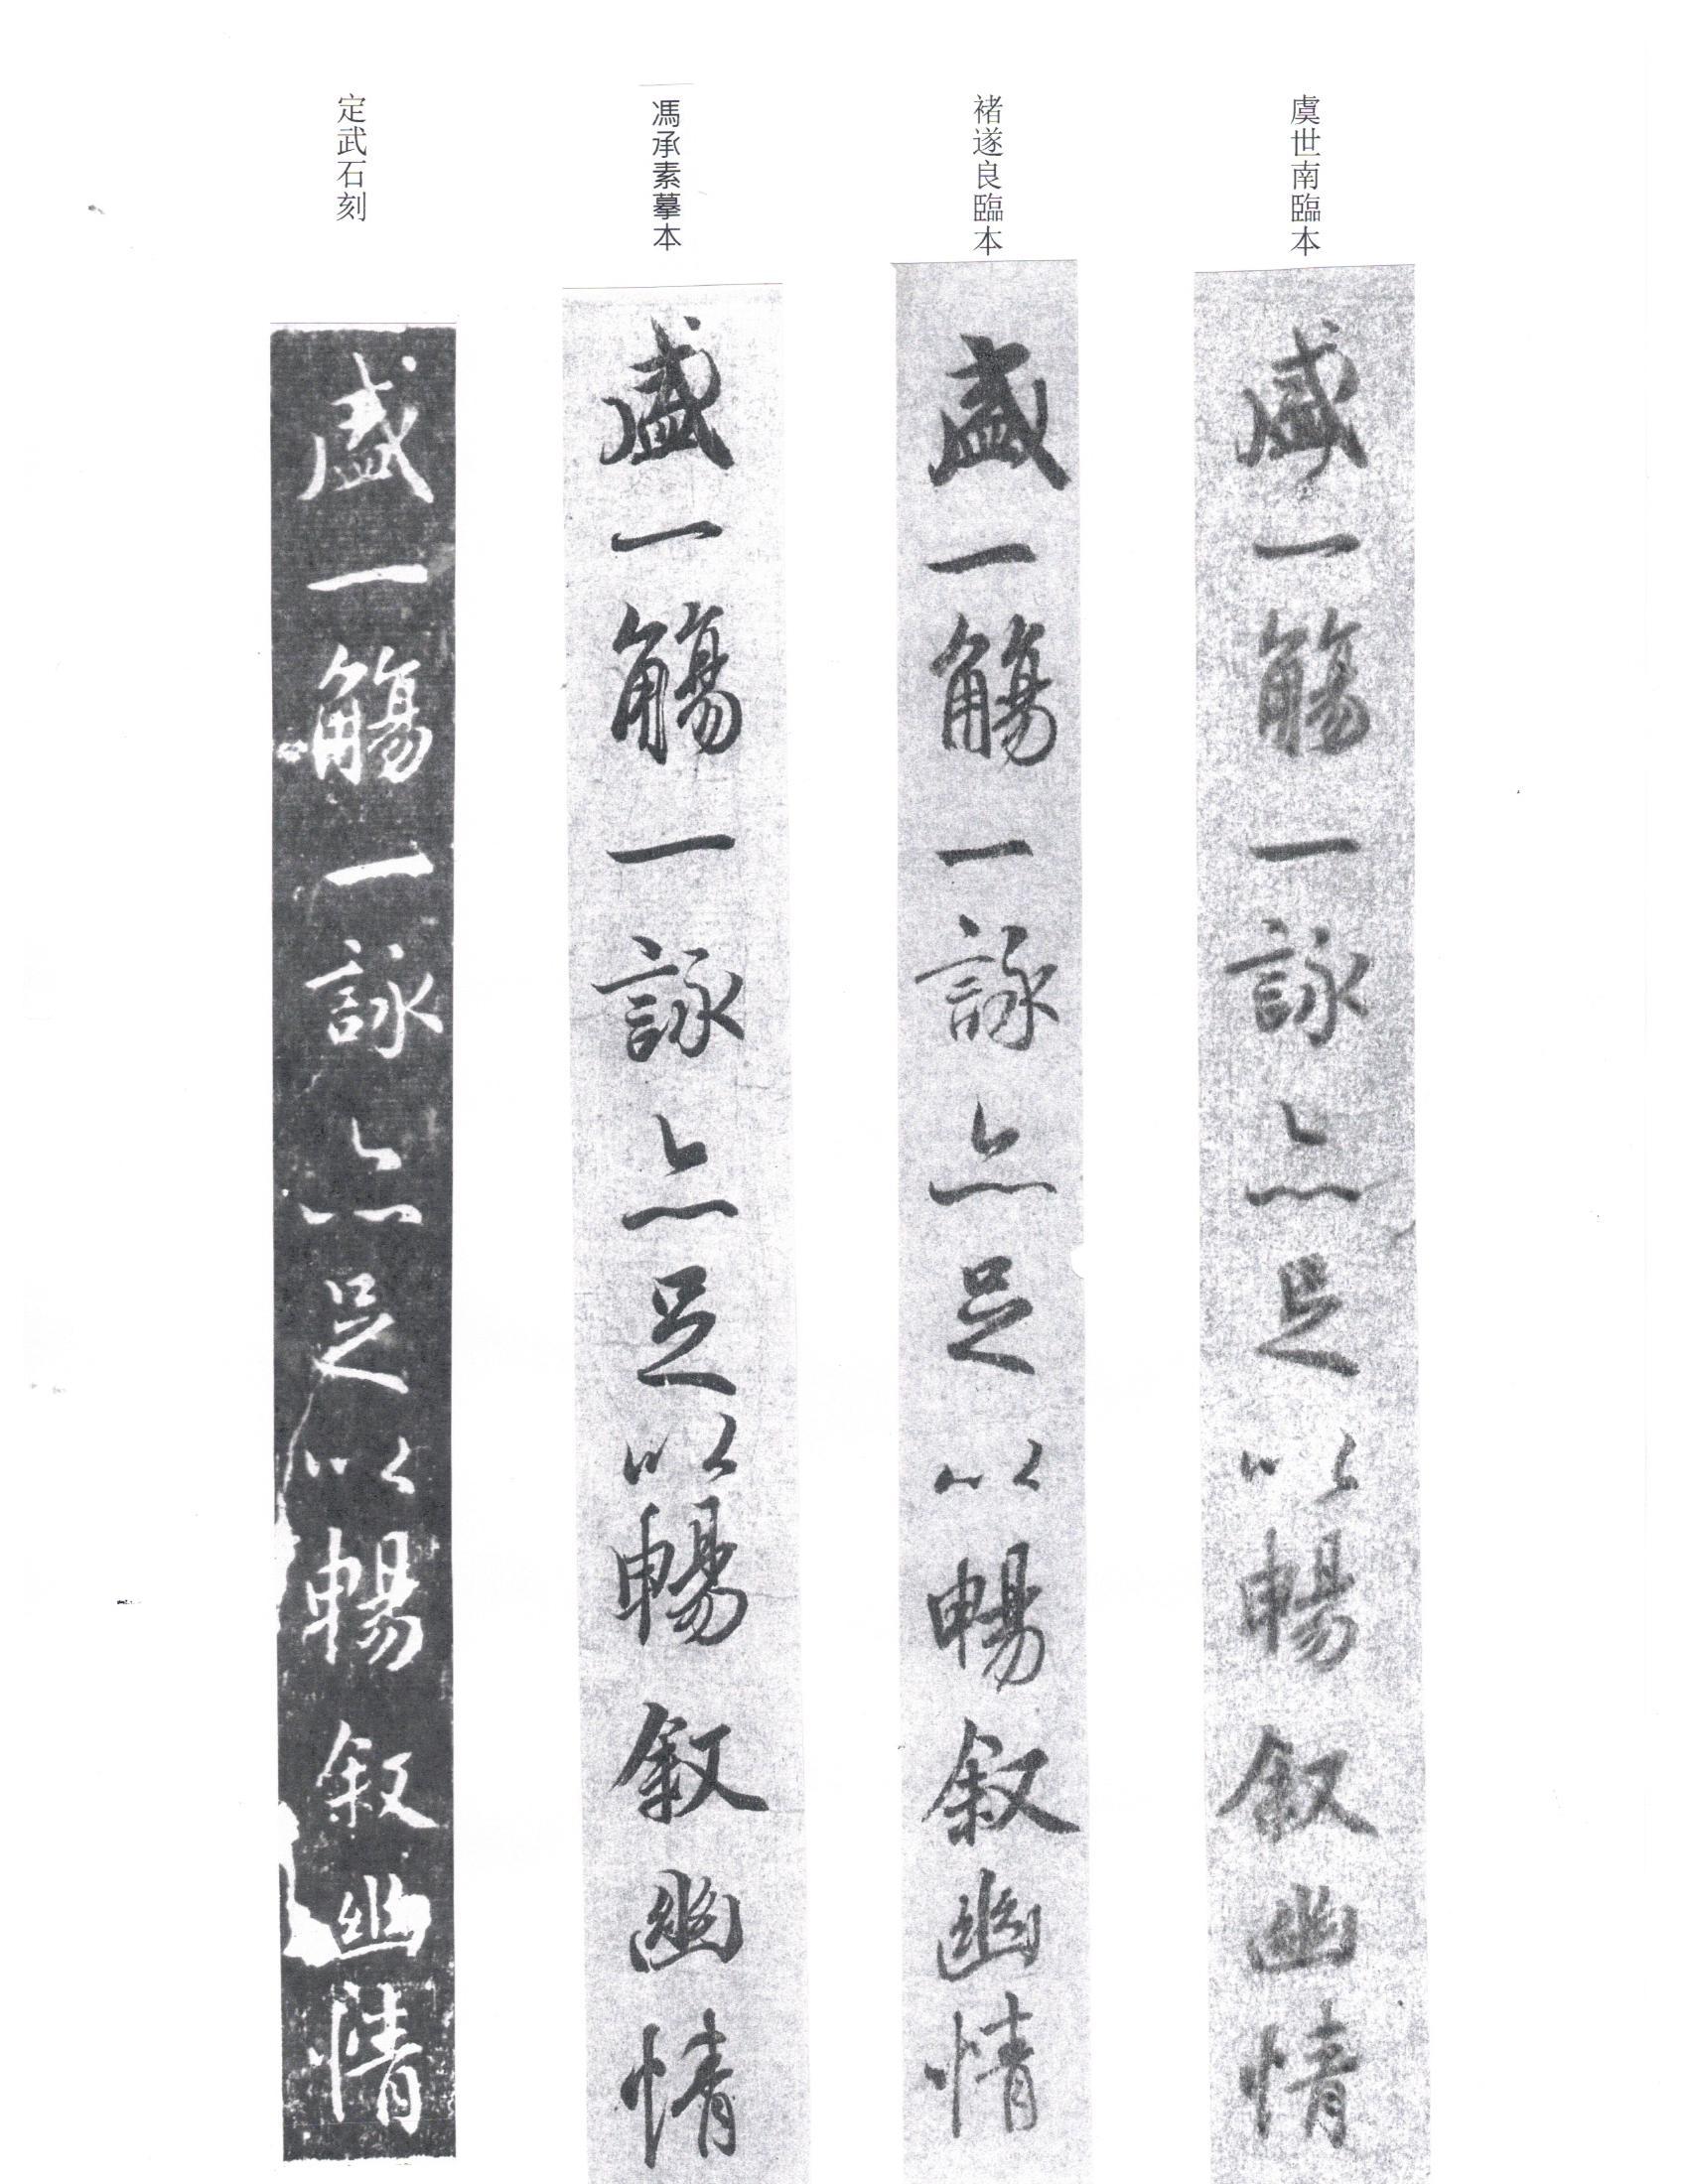 虞世南臨本
盛一觴一詠亦足以暢叙幽情
褚遂良臨本
盛一觴一詠亦足以暢叙幽情
馮承素摹本
盛一觴一詠亦足以暢叙幽情
定武石刻
盛一觴一詠亦足以暢叙幽情